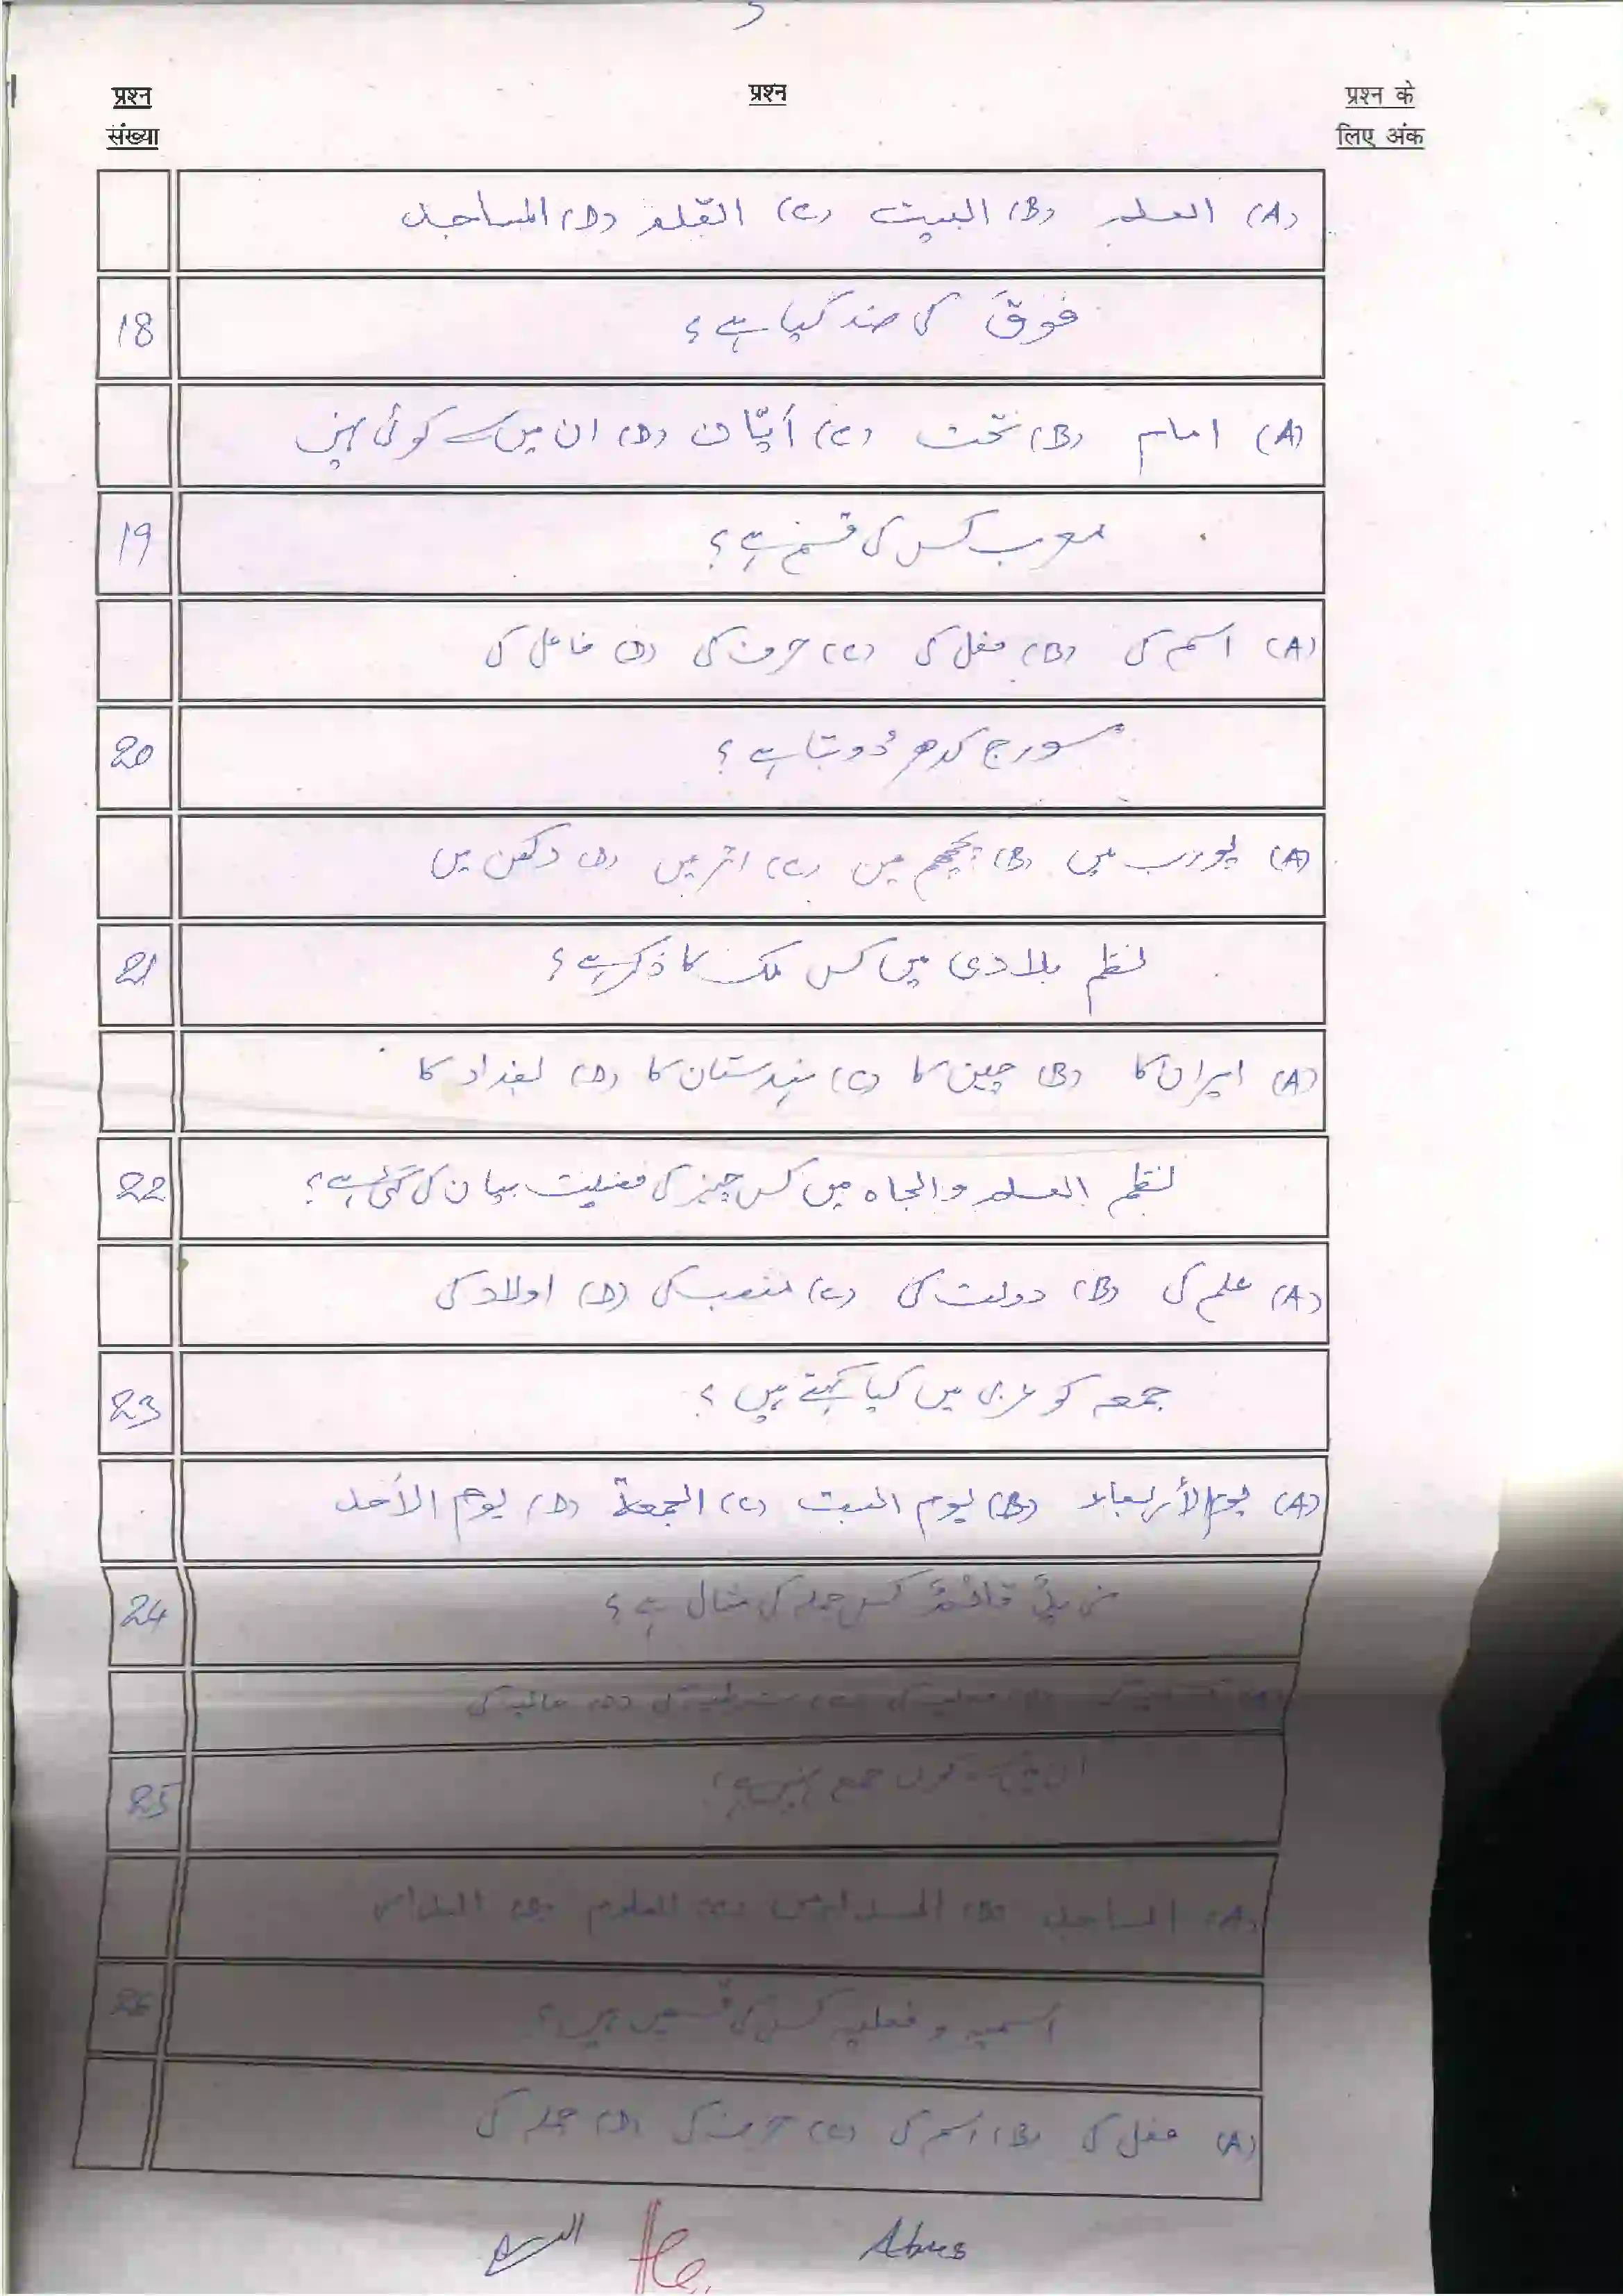 प्रश्न संख्या
प्रश्न
प्रश्न के लिए अंक
(A) العلم (B) البيت (C) القلم (D) المساجد
18 فوق کی ضد کیا ہے؟
(A) امام (B) تحت (C) أيّان (D) ان میں سے کوئی نہیں
19 معرب کس کی قسم ہے؟
(A) اسم کی (B) فعل کی (C) حرف کی (D) فاعل کی
20 سورج کدھر ڈوبتا ہے؟
(A) پورب میں (B) پچھم میں (C) اتر میں (D) دکھن میں
21 نظم بلادی میں کس ملک کا ذکر ہے؟
(A) ایران کا (B) چین کا (C) ہندستان کا (D) بغداد کا
22 نظم العلم والجاہ میں کس چیز کی فضیلت بیان کی گئی ہے؟
(A) علم کی (B) دولت کی (C) منصب کی (D) اولاد کی
23 جمعہ کو عربی میں کیا کہتے ہیں؟
(A) يوم الأربعاء (B) يوم السبت (C) الجمعة (D) يوم الأحد
24 زيدٌ قائمٌ کس جملہ کی مثال ہے؟
(A) (B) فعلیہ کی (C) شرطیہ کی (D) حالیہ کی
25 ان میں سے کون جمع نہیں ہے؟
(A) المساجد (B) المدارس (C) العلوم (D)
26 اسمیہ و فعلیہ کس کی قسمیں ہیں؟
(A) فعل کی (B) اسم کی (C) حرف کی (D) جملہ کی